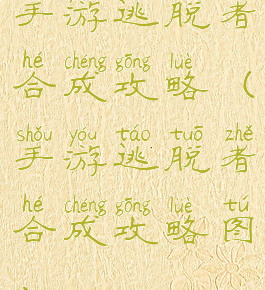 手游逃脱者
hé chéng gōng luè
合成攻略（
shǒu yóu táo tuō zhě
手游逃脱者
hé chéng gōng luè tú
合成攻略图